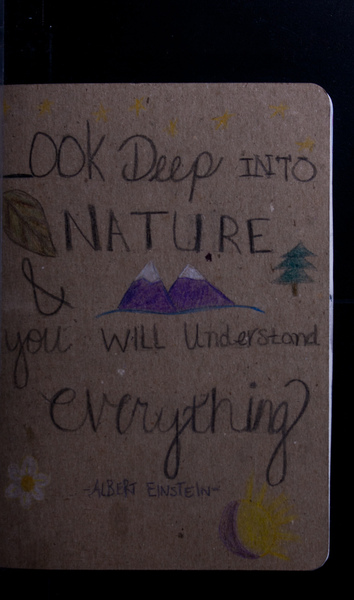 LOOK Deep INTO
NATURE
&
you WILL Understand
everything
-ALBERT EINSTEIN-